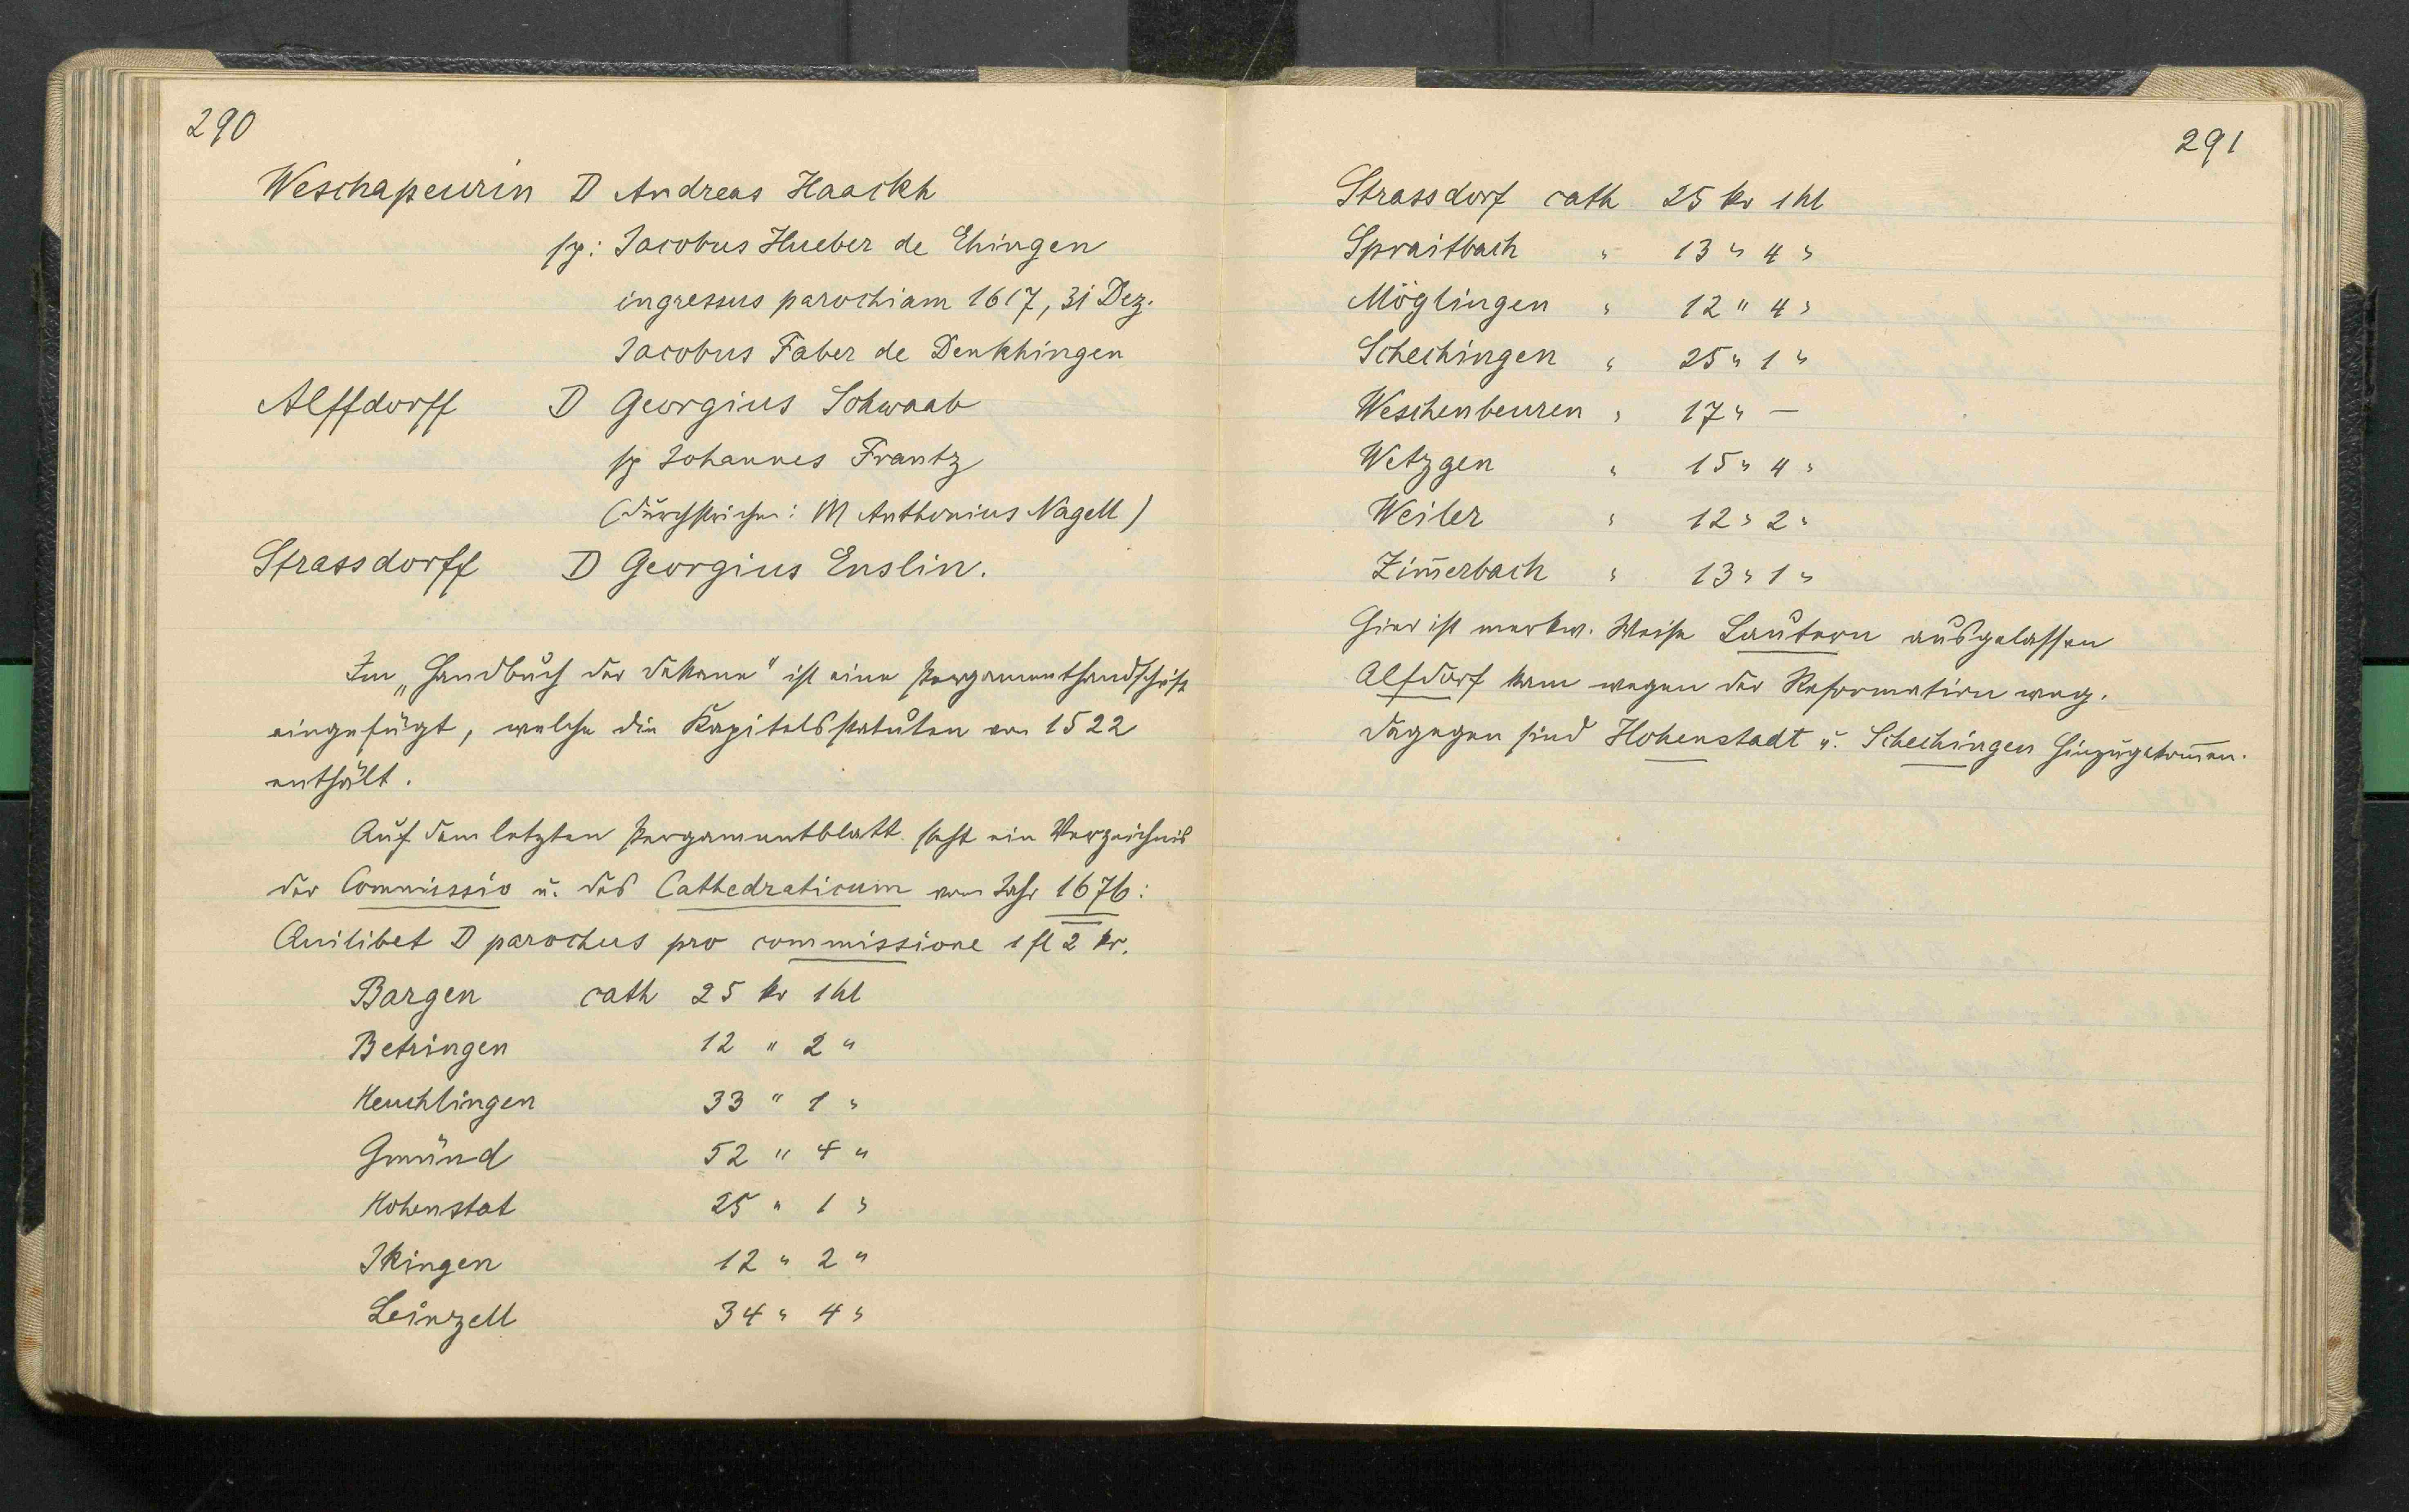 290
Weschapeurin D Andreas Haackh
sp: Jacobus Hueber de Ehingen
ingressus parochiam 1617, 31 Dez.
Jacobus Faber de Denkhingen
Alffdorff D Georgius Schwaab
sp Johannes Frantz
(durchstrichen: M Anthonius Nagell)
Strassdorff D Georgius Enslin.
Im „Handbuch der Dekane" ist eine Pergamenthandschrift
eingefügt, welche die Kapitelsstatuten von 1522
enthält.
Auf dem letzten Pergamentblatt steht ein Verzeichnis
der Commissio u. des Cathedraticum vom Jahr 1676:
Quilibet D parochus pro commissione 1 fl 2 kr.
Bargen cath 25 kr 1 hl
Betringen 12 " 2 "
Heuchlingen 33 " 1 "
Gmünd 52 " 4 "
Hohenstat 25 " 1 "
Ikingen 12 " 2 "
Leinzell 34 " 4 "
291
Strassdorf cath 25 kr 1 hl
Spraitbach " 13 " 4 "
Möglingen " 12 " 4 "
Schechingen " 25 " 1 "
Weschenbeuren " 17 " —
Wetzgen " 15 " 4 "
Weiler " 12 " 2 "
Zim̄erbach " 13 " 1 "
Hier ist merkw. Weise Lautern ausgelassen
Alfdorf kam wegen der Reformation weg.
Dagegen sind Hohenstadt u. Schechingen hinzugekom̄en.